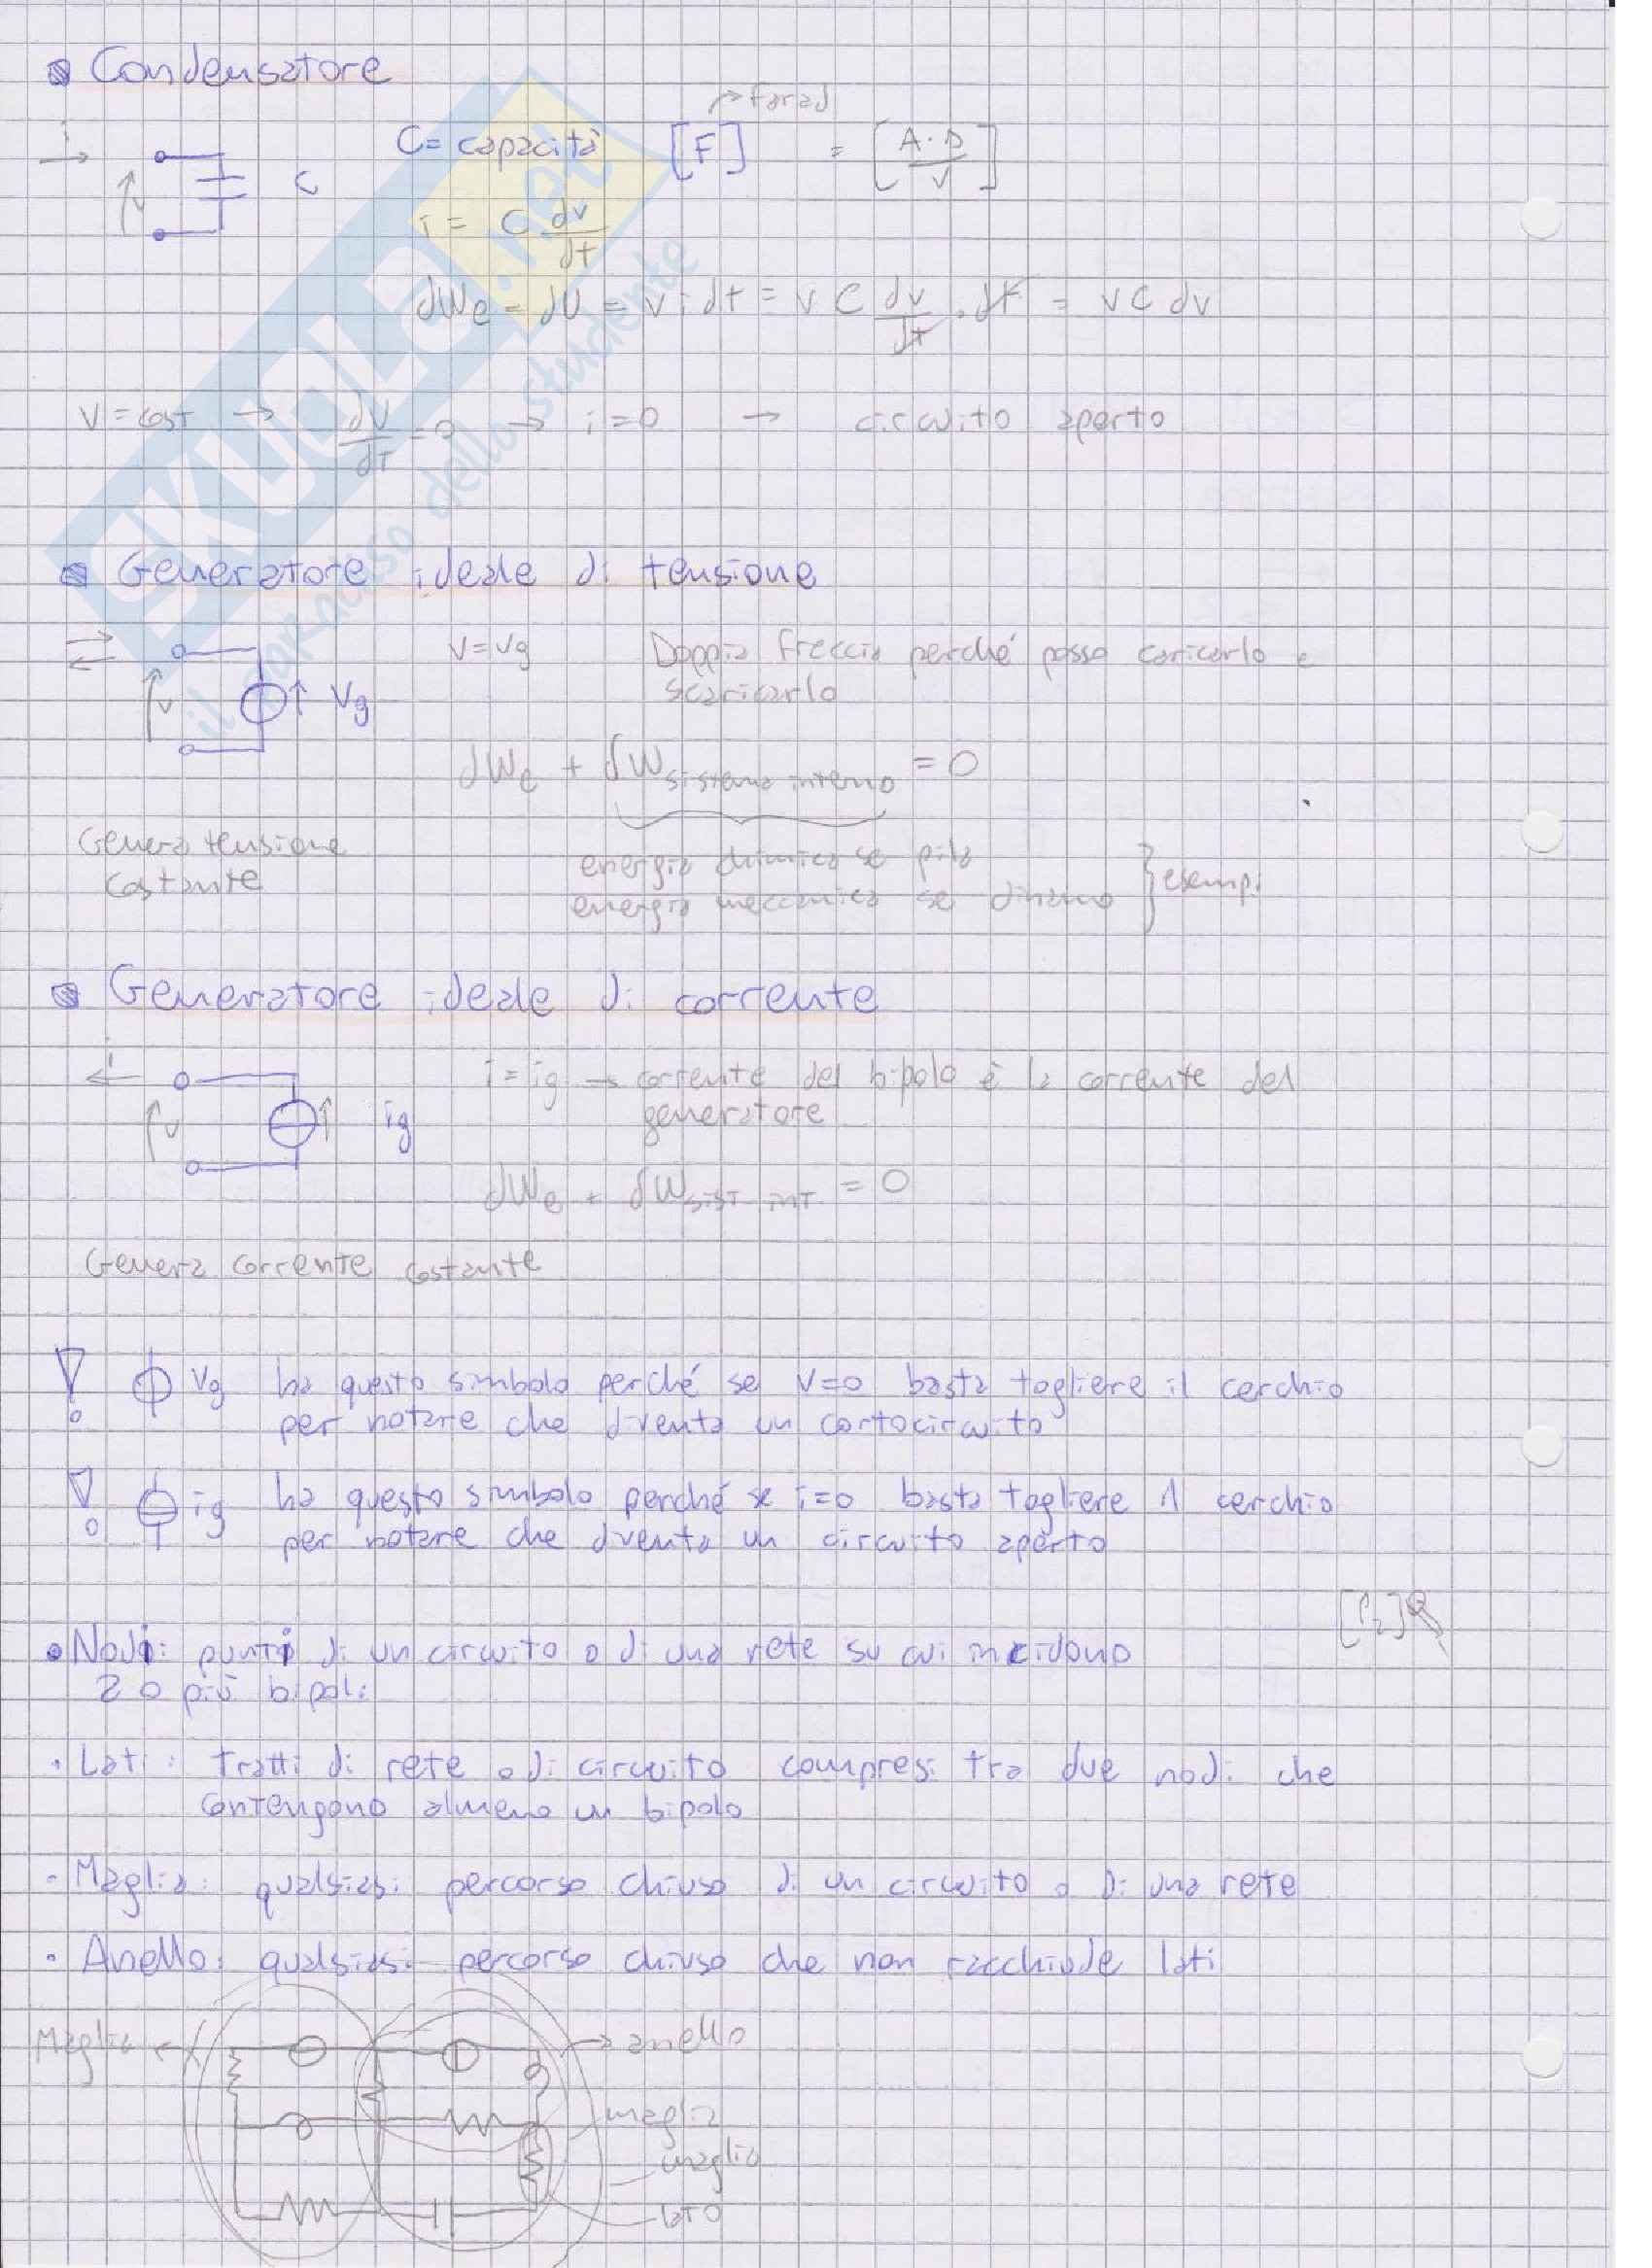 Condensatore
→ farad
i
C = capacità [F] = [A·s/V]
v
C
i = C dv/dt
dWe = dU = v i dt = v C dv/dt · dt = v C dv
V = cost → dV/dT = 0 → i = 0 → circuito aperto
Generatore ideale di tensione
v = vg Doppia freccia perché posso caricarlo e
scaricarlo
v
Vg
dWe + δW sistema interno = 0
Genera tensione
costante
energia chimica se pila
energia meccanica se dinamo } esempi
Generatore ideale di corrente
i
i = ig → corrente del bipolo è la corrente del
generatore
v
ig
dWe + δW sist. int. = 0
Genera corrente costante
! Vg ha questo simbolo perché se V=0 basta togliere il cerchio
per notare che diventa un cortocircuito
! ig ha questo simbolo perché se i=0 basta togliere il cerchio
per notare che diventa un circuito aperto
• Nodi: punti di un circuito o di una rete su cui incidono
2 o più bipoli
• Lati: tratti di rete o di circuito compresi tra due nodi che
contengono almeno un bipolo
• Maglia: qualsiasi percorso chiuso di un circuito o di una rete
• Anello: qualsiasi percorso chiuso che non racchiude lati
Maglia
→ anello
maglia
maglia
lato
SKUOLA.net
il paradiso dello studente